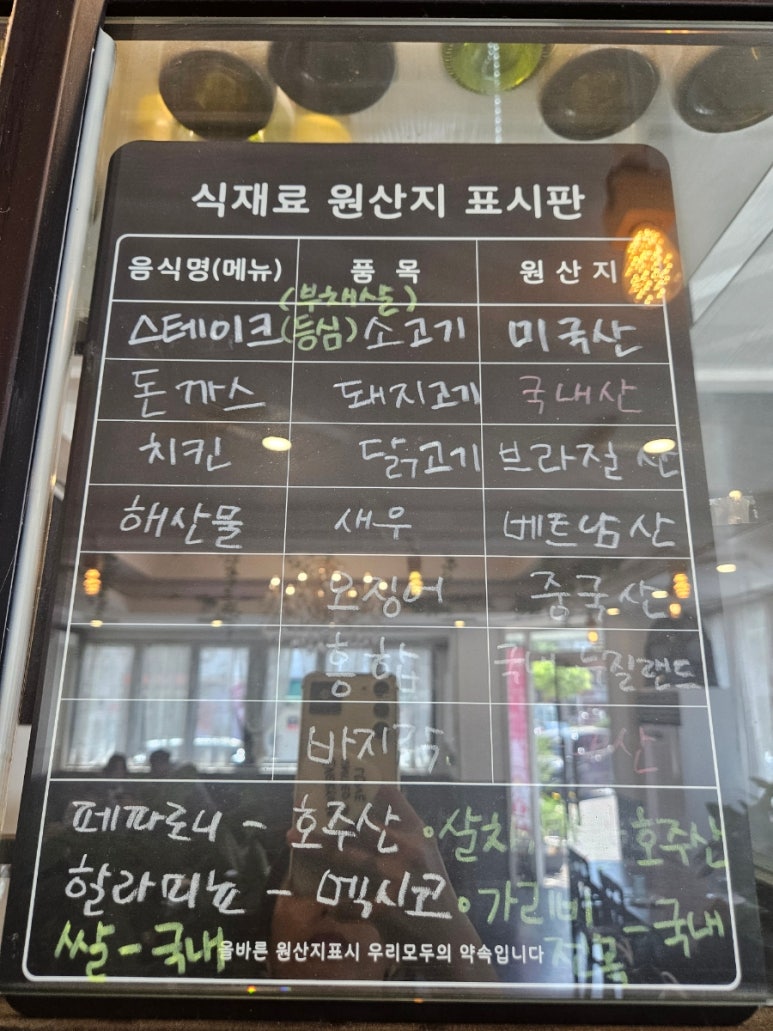 식재료 원산지 표시판
음식명(메뉴) 품 목 원 산 지
(부채살)
스테이크 (등심) 소고기 미국산
돈까스 돼지고기 국내산
치킨 닭고기 브라질산
해산물 새우 베트남산
오징어 중국산
홍합 뉴질랜드
바지락
페파로니 - 호주산 •살치 호주산
할라피뇨 - 멕시코 •가리비
쌀 - 국내 전복 - 국내
올바른 원산지표시 우리모두의 약속입니다